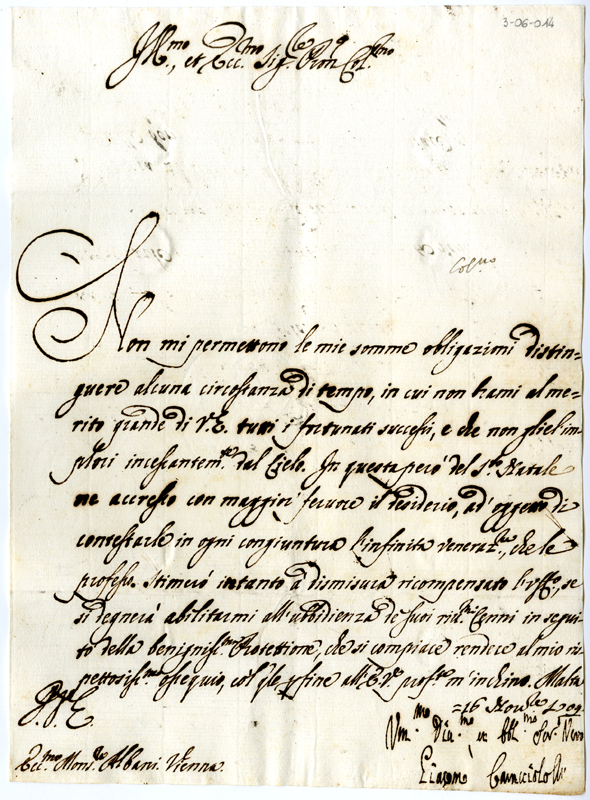 3-06-014
Ill.mo, et Ecc.mo Sig.re P'ron Col.mo
Col.mo
Non mi permettono le mie somme obligazioni distin=
guere alcuna circostanza di tempo, in cui non brami al me=
rito grande di V.E. tutti i fortunati successi, e che non gliel'im=
plori incessantem.te dal Cielo. In questa però del S.to Natale
ne accresco con maggior fervore il desiderio, ad oggetto di
contestarle in ogni congiuntura l'infinita veneraz.ne, che le
professo. Stimerò intanto a dismisura ricompensato l'uff.o, se
si degnerà abilitarmi all'ubbidienza de suoi riv.mi Cenni in segui=
to della benigniss.ma Protettione, che si compiace rendere al mio ri=
spettosiss.mo ossequio, col q.le p fine all'E.V. prof.te m'inchino. Malta
=16 Nov.bre 1709
P.pe E.
Um.mo Div.mo et Obl.mo Ser.r Vero
Ecc.mo Mons.re Albani. Vienna.
Giacomo Caracciolo